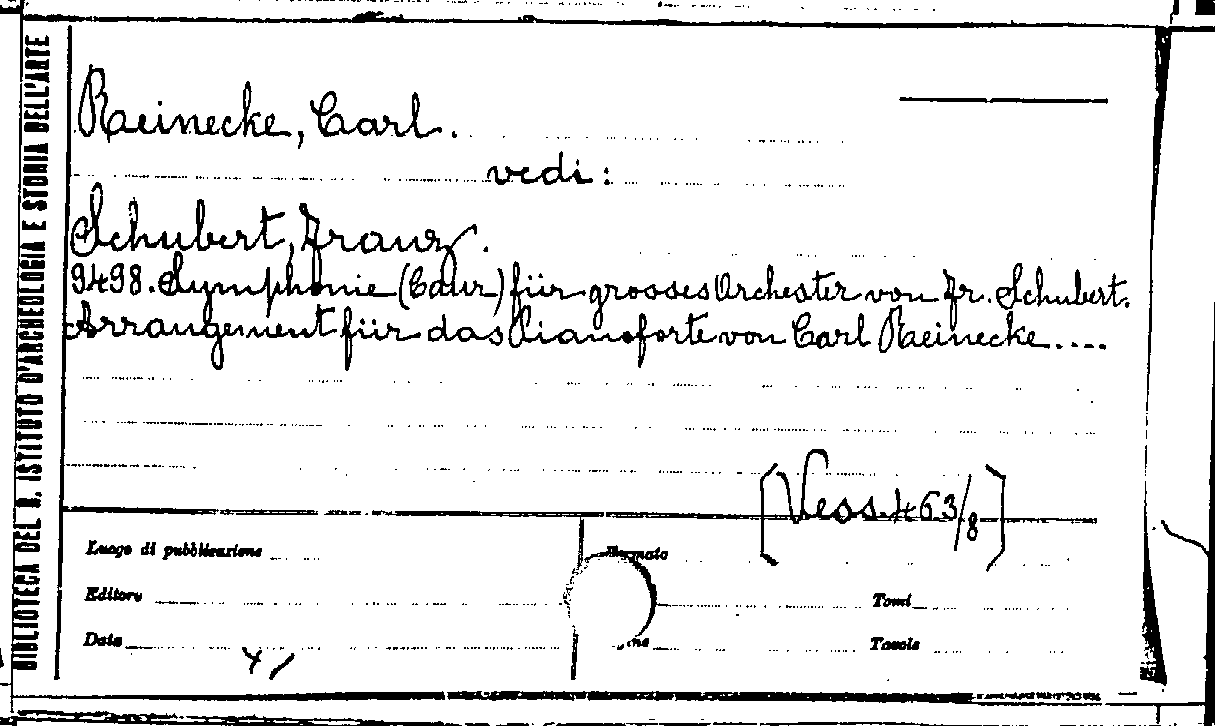 BIBLIOTECA DEL R. ISTITUTO D'ARCHEOLOGIA E STORIA DELL'ARTE
Reinecke, Carl.
vedi:
Schubert, Franz.
9498. Symphonie (Cdur) für grosses Orchester von Fr. Schubert.
Arrangement für das Pianoforte von Carl Reinecke....
[Vess. 463/8]
Luogo di pubblicazione
Formato
Editore
Tomi
Data
Tavole